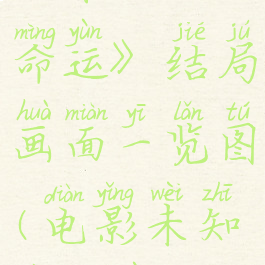 mìng yùn jié jú
命运》结局
huà miàn yī lǎn tú
画面一览图
diàn yǐng wèi zhī
(电影未知